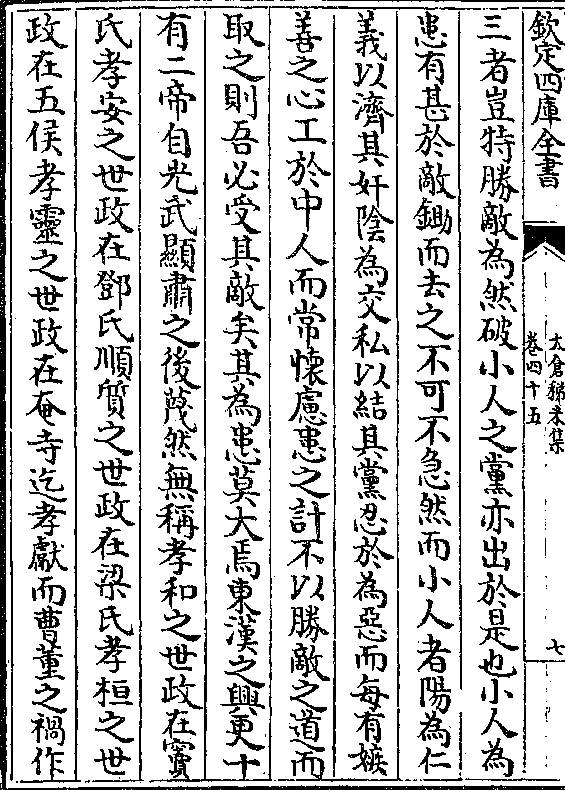 欽定四庫全書
太倉稊米集
卷四十五
七
三者豈特勝敵為然破小人之黨亦出於是也小人為
患有甚於敵鋤而去之不可不急然而小人者陽為仁
義以濟其奸陰為交私以結其黨忍於為惡而每有嫉
善之心工於中人而常懷慮患之計不以勝敵之道而
取之則吾必受其敵矣其為患莫大焉東漢之興更十
有二帝自光武顯肅之後蔑然無稱孝和之世政在竇
氏孝安之世政在鄧氏順質之世政在梁氏孝桓之世
政在五侯孝靈之世政在奄寺迄孝獻而曹董之禍作